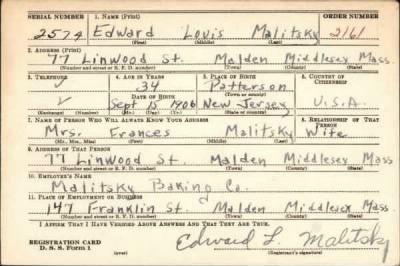 SERIAL NUMBER 1. NAME (Print) ORDER NUMBER
2574 Edward Louis Malitsky 2161
(First) (Middle) (Last)
2. ADDRESS (Print)
77 Linwood St. Malden Middlesex Mass
(Number and street or R. F. D. number) (Town) (County) (State)
3. TELEPHONE 4. AGE IN YEARS 5. PLACE OF BIRTH 6. COUNTRY OF CITIZENSHIP
34 Patterson
DATE OF BIRTH (Town or county)
Sept 15 1906 New Jersey U.S.A.
(Exchange) (Number) (Mo.) (Day) (Yr.) (State or country)
7. NAME OF PERSON WHO WILL ALWAYS KNOW YOUR ADDRESS 8. RELATIONSHIP OF THAT PERSON
Mrs. Frances Malitsky Wife
(Mr., Mrs., Miss) (First) (Middle) (Last)
9. ADDRESS OF THAT PERSON
77 Linwood St. Malden Middlesex Mass
(Number and street or R. F. D. number) (Town) (County) (State)
10. EMPLOYER'S NAME
Malitsky Baking Co.
11. PLACE OF EMPLOYMENT OR BUSINESS
147 Franklin St. Malden Middlesex Mass
(Number and street or R. F. D. number) (Town) (County) (State)
I AFFIRM THAT I HAVE VERIFIED ABOVE ANSWERS AND THAT THEY ARE TRUE.
REGISTRATION CARD
D. S. S. Form 1 (over) Edward L. Malitsky
(Registrant's signature)